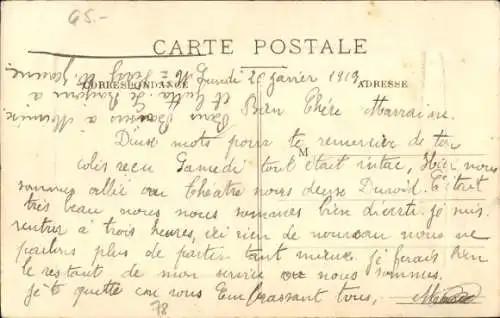 65.-
CARTE POSTALE
CORRESPONDANCE
ADRESSE
M
Lundi 20 Janvier 1913
Bien Chère Marraine.
Deux mots pour te remercier de ton
colis recu Samedi tout était intac, Hier nous
sommes allée au Théâtre nous deux David. C'étai
très beau nous nous sommes bien diverti. je suis
rentrer à trois heures, ici rien de nouveau nous ne
parlons plus de partir tant mieux. je ferais bien
le restant de mon service ou nous sommes.
je te quitte en vous Embrassant tous,
78